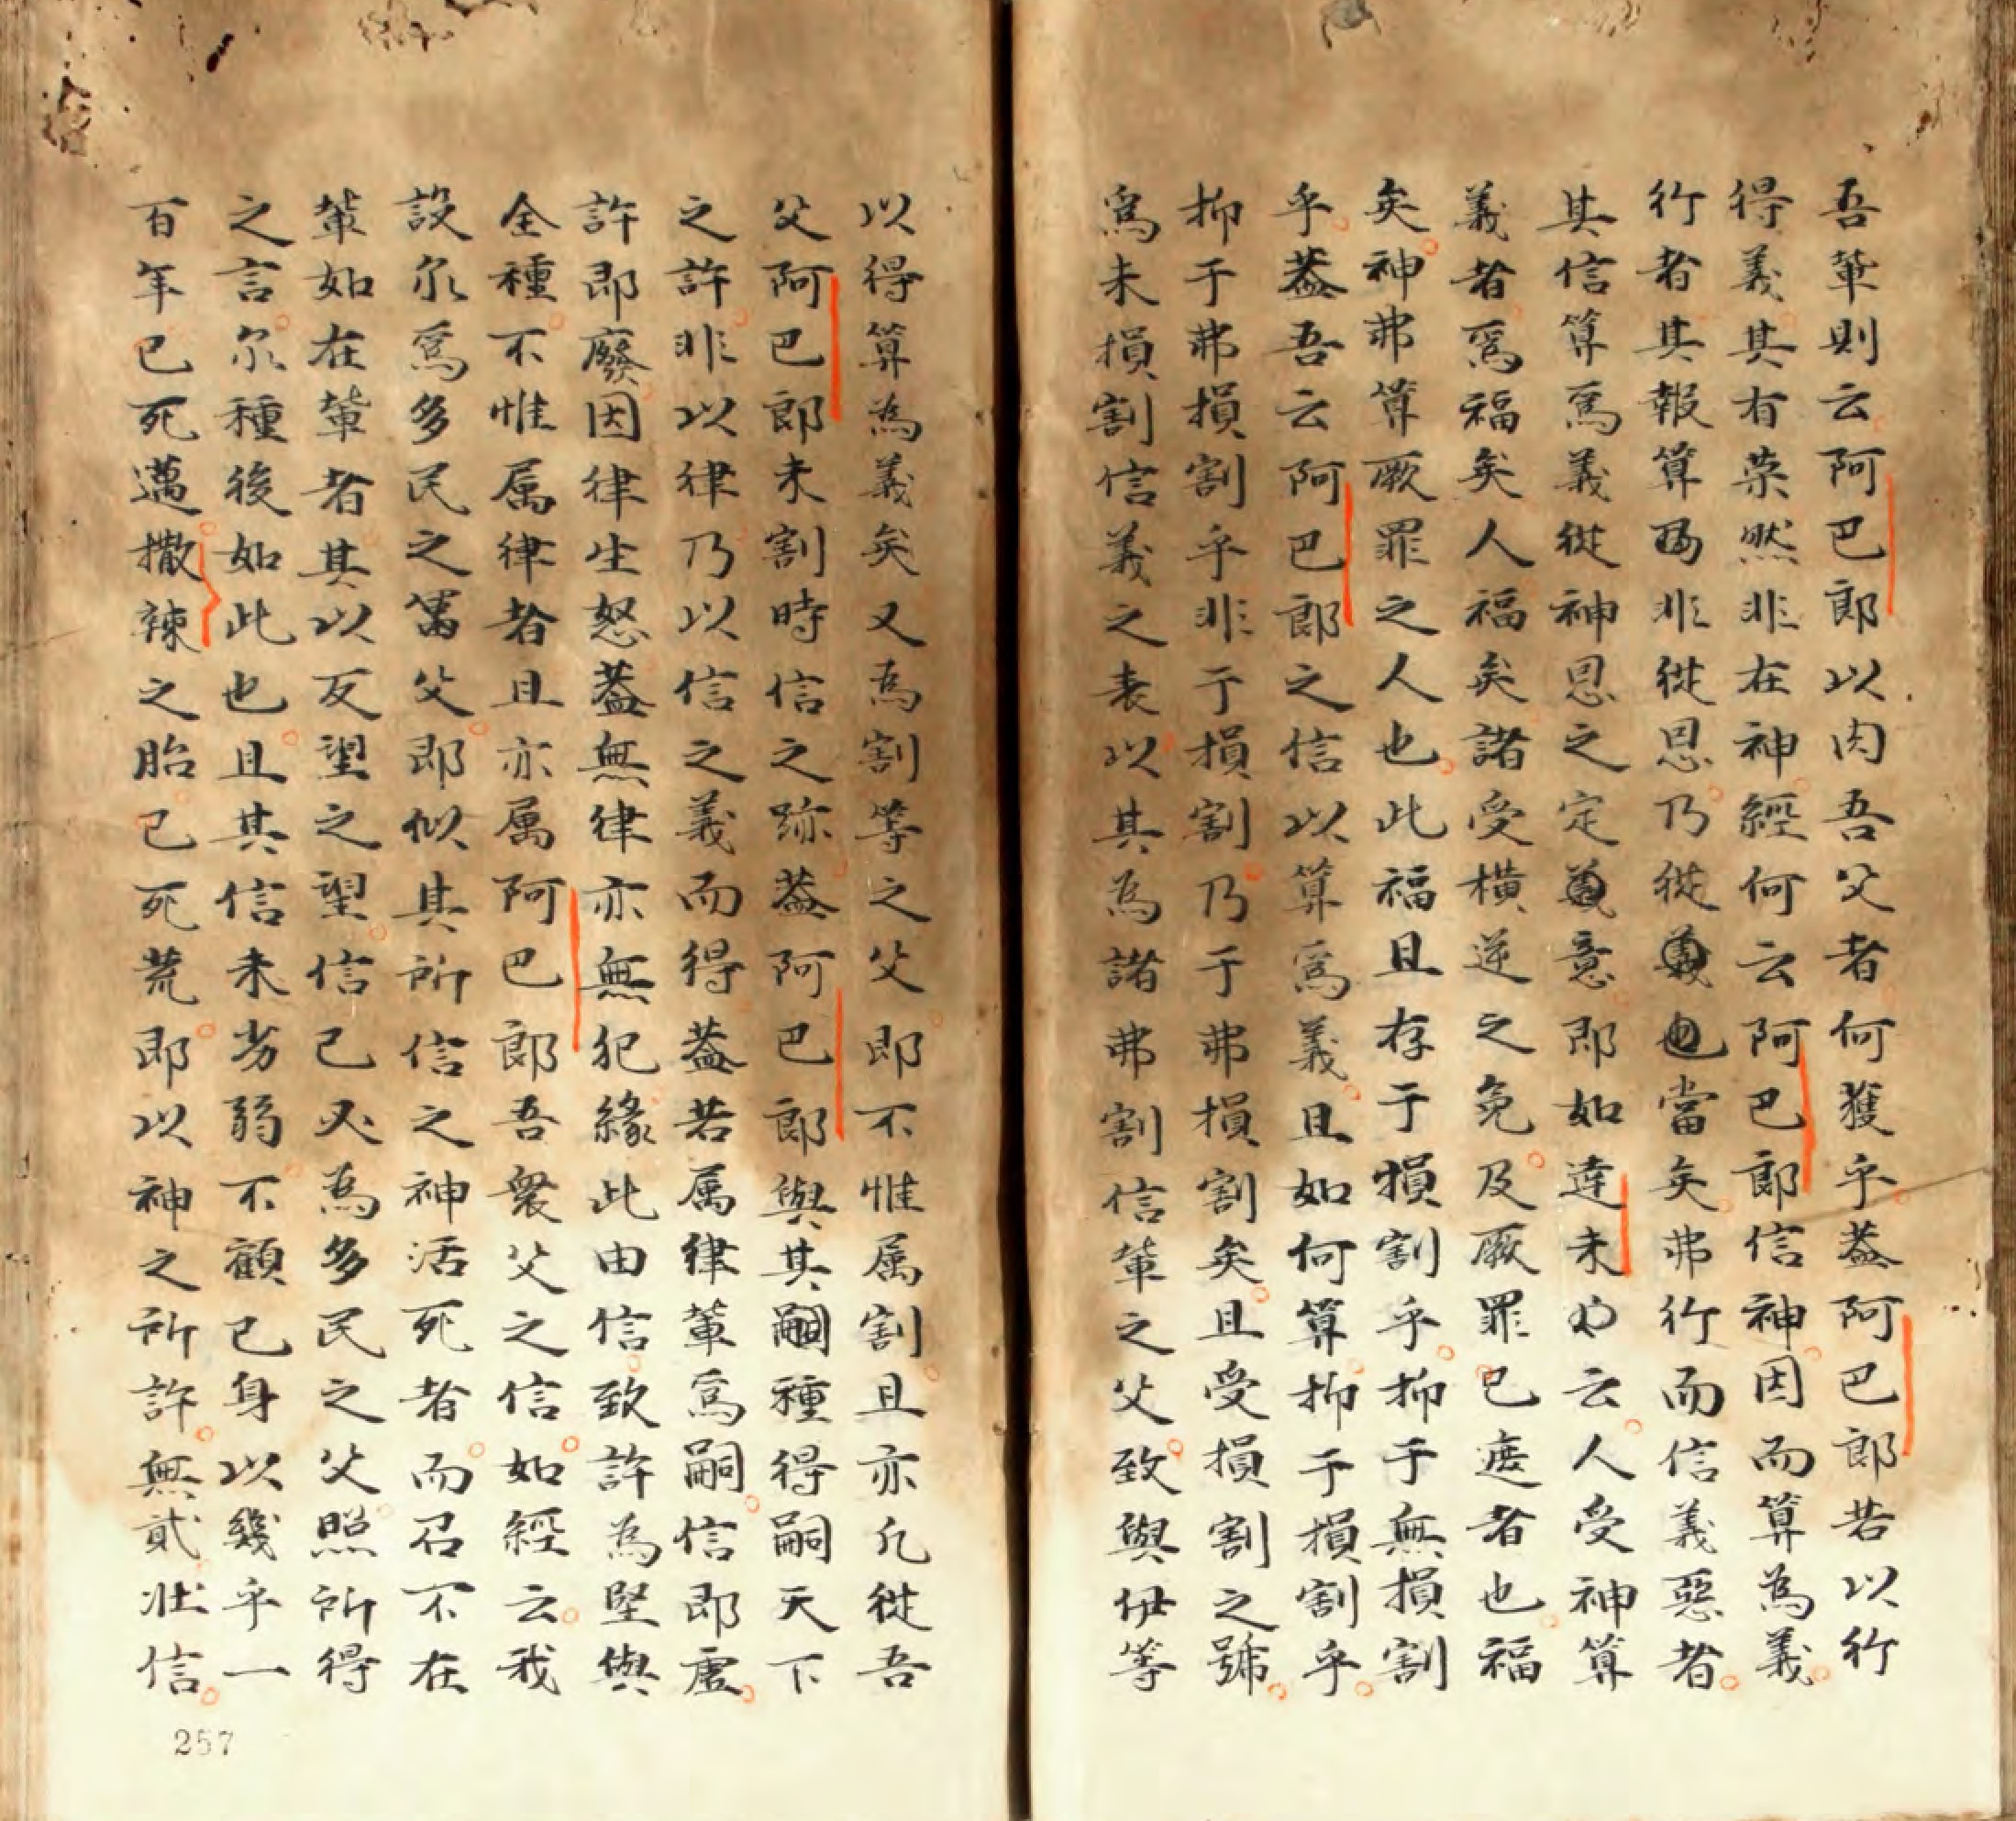 吾輩則云阿巴郎以肉吾父者何獲乎蓋阿巴郎若以行
得義其有榮然非在神經何云阿巴郎信神因而算為義
行者其報算為非従恩乃従義也當矣弗行而信義惡者
其信算爲義従神恩之定意即如達未也云人受神算
義者爲福矣人福矣諸受橫逆之免及厥罪已遮者也福
矣神弗算厥罪之人也此福且存于損割乎抑于無損割
乎葢吾云阿巴郎之信以算爲義且如何算抑于損割乎
抑于弗損割乎非于損割乃于弗損割矣且受損割之號
爲未損割信義之表以其為諸弗割信輩之父致與伊等
以得算為義矣又為割等之父即不惟属割且亦凡従吾
父阿巴郎未割時信之跡葢阿巴郎與其嗣種得嗣天下
之許非以律乃以信之義而得葢若属律輩爲嗣信即虛
許即廢因律生怒葢無律亦無犯緣此由信致許為堅與
全種不惟属律者且亦属阿巴郎吾衆父之信如經云我
設尔爲多民之父即似其所信之神活死者而召不在
輩如在輩者其以反望之望信己必為多民之父照所得
之言尔種後如此也且其信未劣弱不顧己身以幾乎一
百年已死邁撒辣之胎已死荒即以神之所許無貳壯信
257